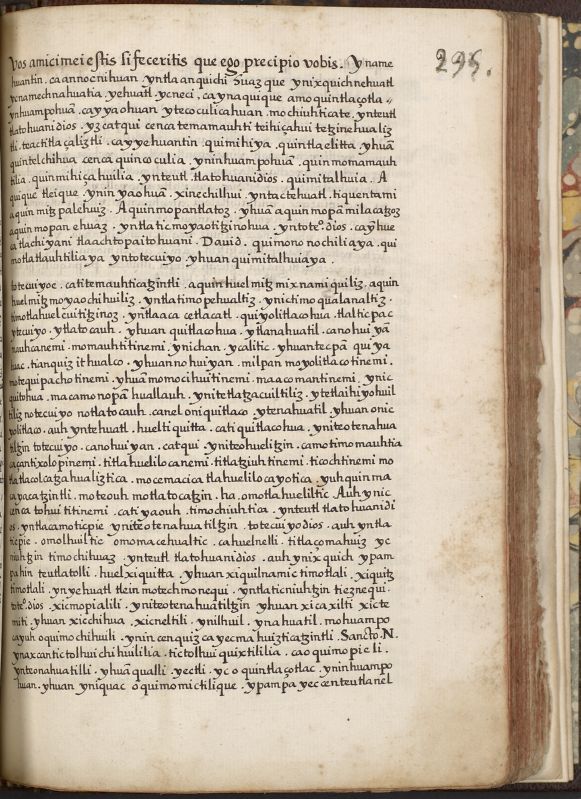 295.
Vos amici mei estis si feceritis que ego precipio vobis. yn ame
huantin. ca annocnihuan yntla anquichi huaz que ynixquich nehuatl
ycnamechnahuatia. yehuatl. ycneci, ca yn aquique amo quintlaçotla
ynhuampohuā. ca yyaohuan ytecoculicahuan. mochiuhticate. ynteutl
tlatohuani dios. yz catqui cenca temamauhti teihiçahui tetzinehualiz
tli. teactitlaçaliztli. ca yyehuantin quimihiya. quintlaelitta. yhuā
quintelchihua cenca quincoculia. yninhuampohuā. quinmotnamauh
tilia. quinmihiçahuilia. ynteutl tlatohuani dios. quimitalhuia. A
quique tleique. ynin yaohuā. xinechilhui yntac tehuatl. tiquentami
aquin mitz palehuiz. Aquin mopantlatoz. yhuā aquin mopā milacatzoz
aquin mopan ehuaz. yntlaticmoyaotitzinohua. ynto teo. dios. ca yhue
ca tlachiyani tlaachtopaitohuani. David. quimononochiliaya. qui
motlatlauhtiliaya yntotecuiyo yhuan quimitalhuiaya.
totecuiyoe. ca titemauhticatzintli. aquin huel mitz mixnamiquiliz. aquin
huel mitzmoyaochihuiliz. yntlatimopehualtiz. ynictimoqualanaltiz.
timotlahuelcuititzinoz. yntlaaca cetlacatl. quiyolitlacohua. tlalticpac
ytecuiyo. ytlatocauh. yhuan quitlacohua. ytlanahuatil. canohuiyā
nauhcanemi. momauhtitinemi. ynichan. ycalitic. yhuantecpā quiya
huac. tianquiz ithualco. yhuan nohuiyan. milpan moyolitlacotinemi.
motequipachotinemi. yhuā momocihuitinemi. maacomantinemi. ynic
quitohua. macamo nopā huallauh. ynitetlatzacuiltiliz. ytetlaihiyohuil
tiliz notecuiyo notlatocauh. canel oniquitlaco. ytenahuatil. yhuan onic
yolitlaco. auh yntehuatl. huel tiquitta. ca tiquitlacohua. yniteotenahua
tiltzin totecuiyo. canohuiyan. catqui. yniteohuelitzin. camo timomauhtia
çaçantixolopinemi. titlahuelilocanemi. titlatziuhtinemi. ticochtinemi mo
tlatlacolcatzahualiztica. mocemacica tlahuelilocayotica. yuhquin ma
ayacatzintli. moteouh motlatocatzin. ha. omotlahueliltic. Auh ynic
cenca tohuititinemi. catiyaouh. timochiuhtica. ynteutl tlatohuanidi
os. yntlacamoticpie yniteotenahuatiltzin. totecuiyo dios. auh yntla
ticpie. omolhuiltic omomacehualtic. cahuelnelli. titlaçomahuiz yc
niuhtzin timochihuaz. ynteutl tlatohuani dios. auh ynixquich ypam
pahin teutlatolli. huel xiquitta. yhuan xiquilnamic timotlali. xiquitz
timotlali. yn yehuatl tlein motechmonequi. yntlaticniuhtzin tieznequi.
toteo. dios. xicmopialili. yniteotenahuatiltzin yhuan xicaxilti xicte
miti. yhuan xicchihua. xicneltili. ynilhuil. ynahuatil. mohuampo
ca yuh oquimochihuili. ynin cenquizcayecmahuizticatzintli. Sancto. N.
ynaxcantictolhuichihuililia. tictolhuiquixtililia. ca oquimopieli.
ynteonahuatilli. yhuā qualli. yectli. yc oquintlaçotlac. yninhuampo
huan. yhuan yniquac oquimomictilique. ypampa yecenteutlanel